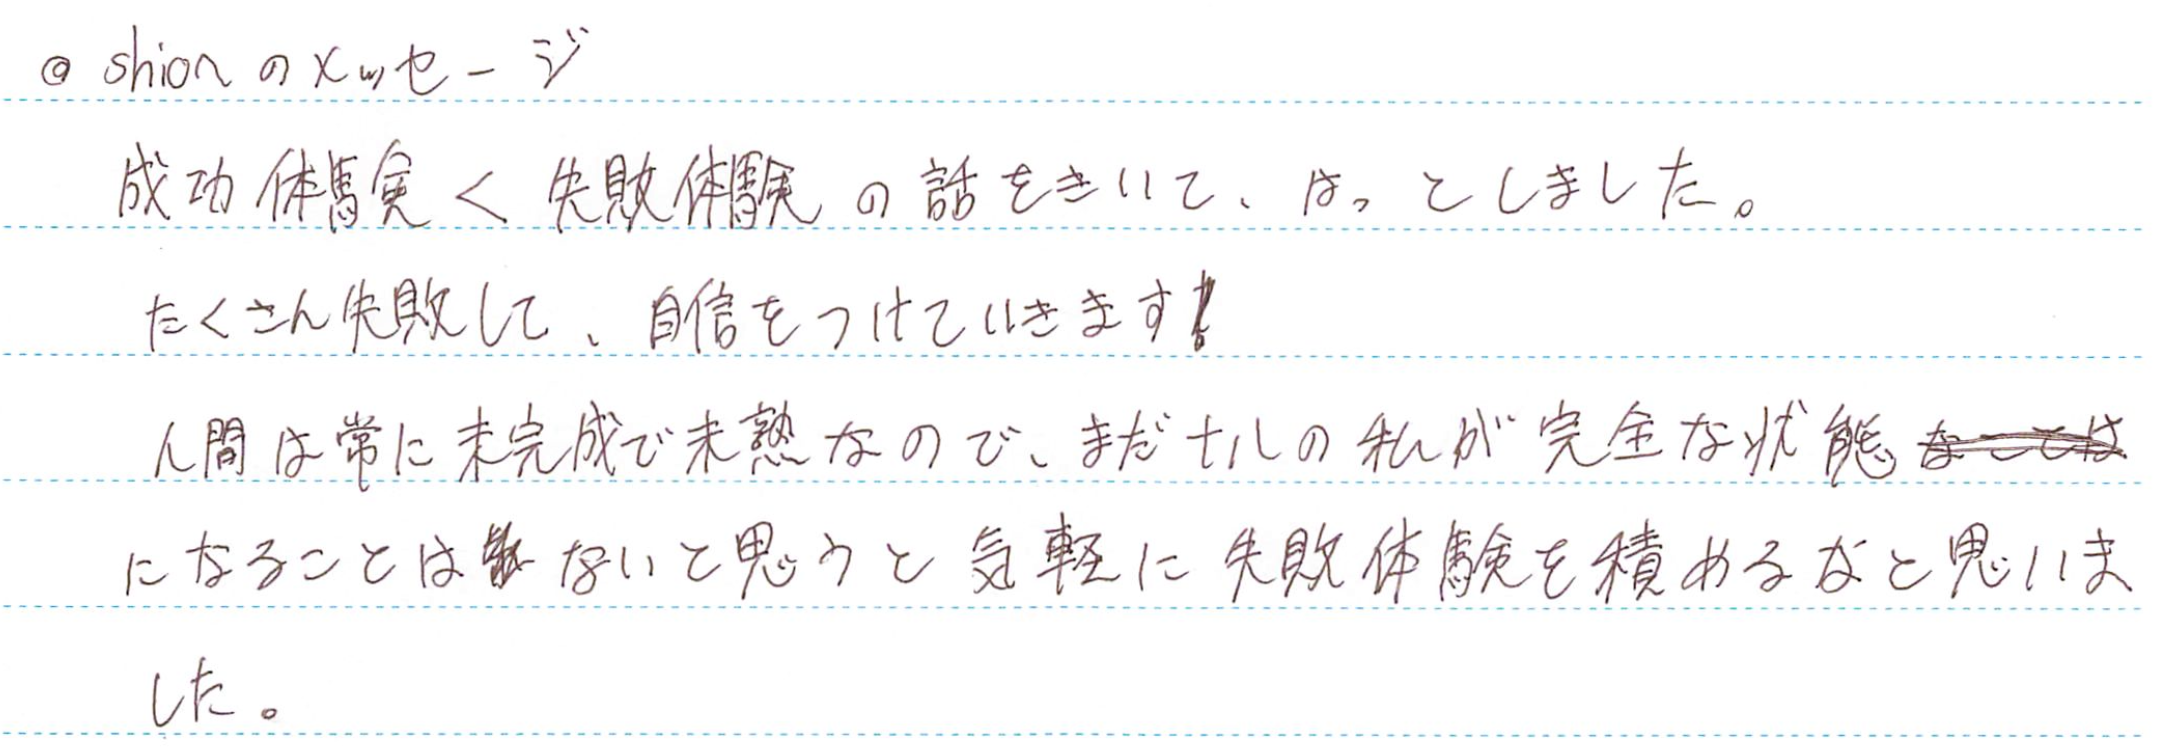 ◎ shionのメッセージ
成功体験く失敗体験の話をきいて、はっとしました。
たくさん失敗して、自信をつけていきます!
人間は常に未完成で未熟なので、まだの私が完全な状態
になることはないと思うと気軽に失敗体験を積めるなと思いま
した。